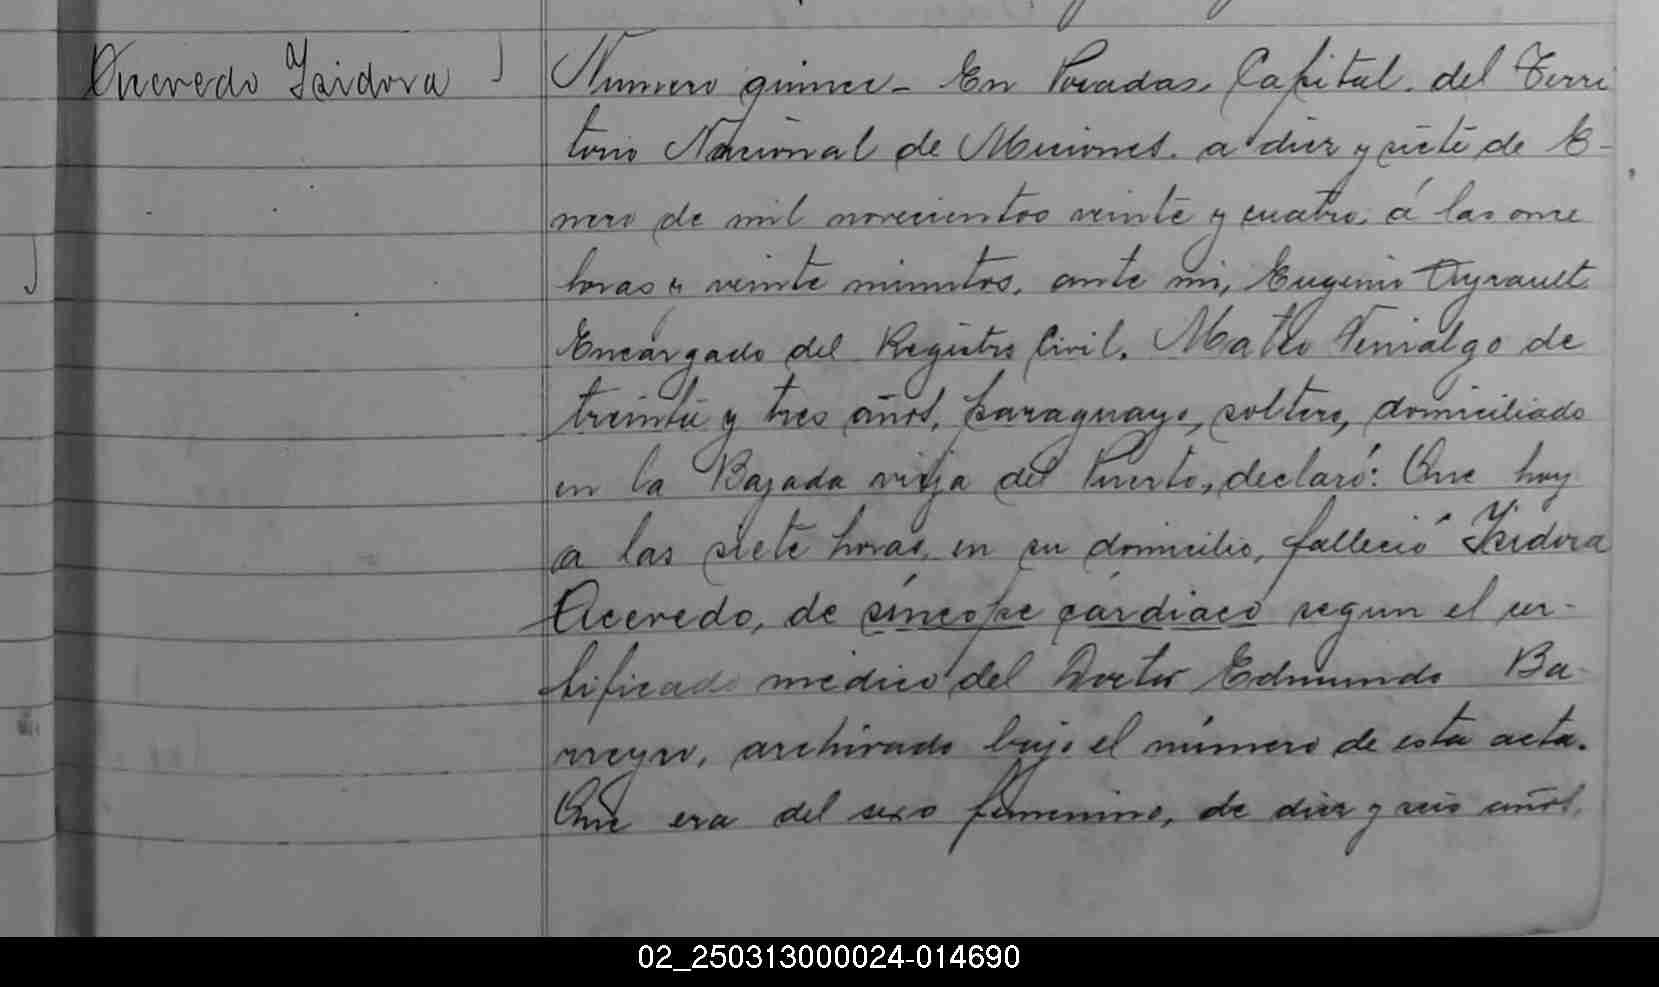 Acevedo Isidora
Número quince - En Posadas, Capital del Terri
torio Nacional de Misiones, a diez y siete de E-
nero de mil novecientos veinte y cuatro, á las once
horas y veinte minutos, ante mi, Eugenio Ayrault
Encargado del Registro Civil, Mateo Venialgo de
treinta y tres años, paraguayo, soltero, domiciliado
en la Bajada vieja del Puerto, declaró: Que hoy
a las siete horas, en su domicilio, falleció Isidora
Acevedo, de síncope cárdiaco segun el cer-
tificado médico del Doctor Edmundo Ba-
rreyro, archivado bajo el número de esta acta.
Que era del sexo femenino, de diez y seis años,
02_250313000024-014690